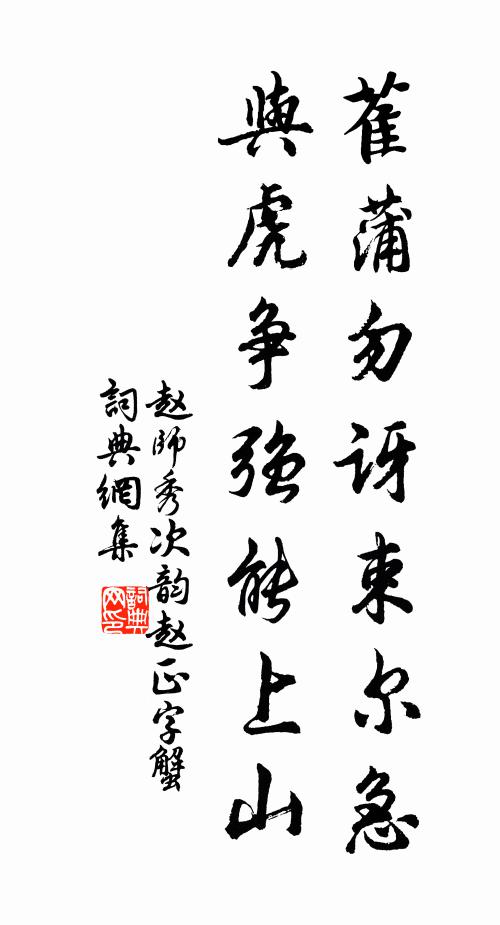 萑蒲勿讶束尔急
與虎争强能上山
赵師秀次韵赵正字蟹
詞典網集
詞典网印